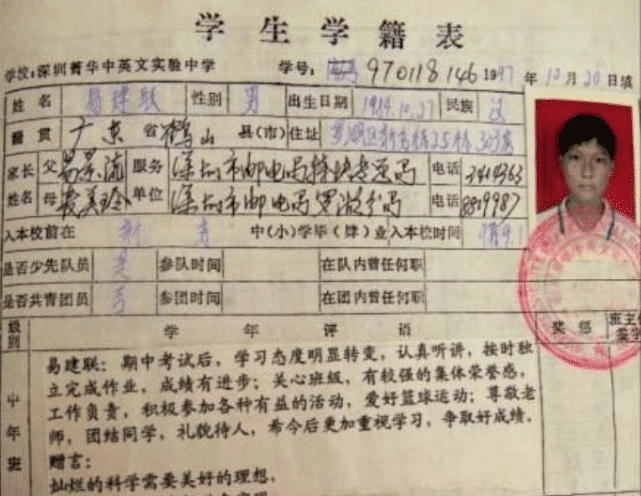 学生学籍表
学校:深圳菁华中英文实验中学 学号: 970118146 1997年10月20日填
姓名 易建联 性别 男 出生日期 1984.10.27 民族 汉
籍贯 广东省鹤山县(市) 住址
家长 父 易景流 服务 深圳市邮电局特快专递局 电话
姓名 母 麦美玲 单位 深圳市邮电局罗湖分局 电话
入本校前在 中(小)学毕(肆)业 入本校时间
是否少先队员 是 参队时间 在队内曾任何职
是否共青团员 否 参团时间 在团内曾任何职
级别 学年评语 奖惩
易建联:期中考试后,学习态度明显转变,认真听讲,按时独
立完成作业,成绩有进步;关心班级,有较强的集体荣誉感,
工作负责,积极参加各种有益的活动,爱好篮球运动;尊敬老
师,团结同学,礼貌待人,希今后更加重视学习,争取好成绩。
赠言:
灿烂的科学需要美好的理想,
中年班